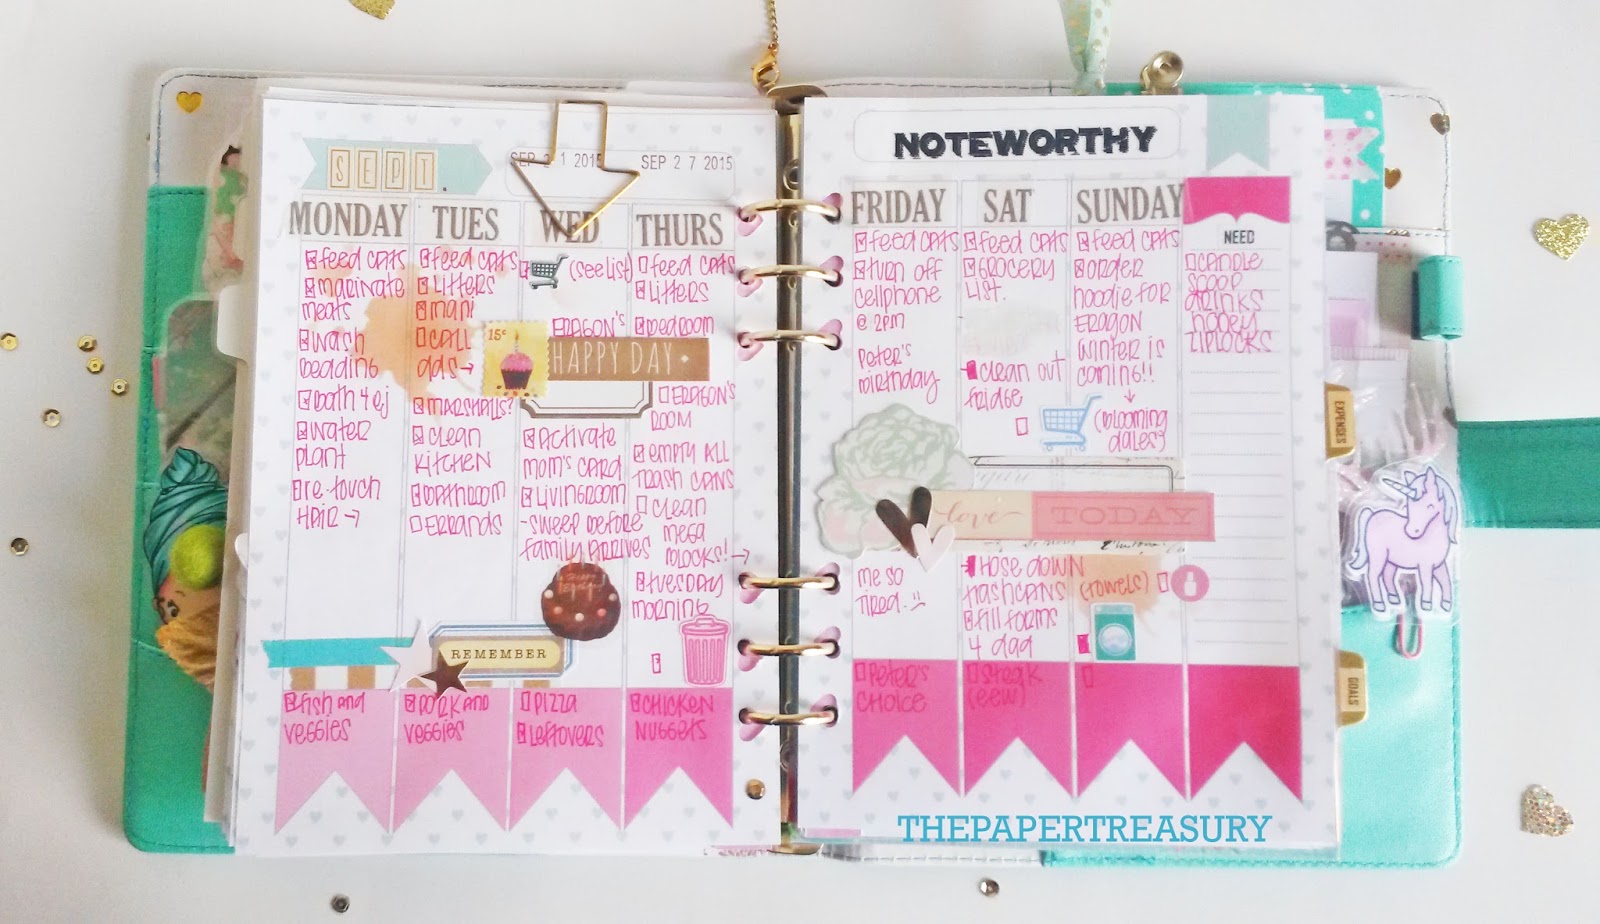 SEPT.
SEP 21 2015
SEP 27 2015
MONDAY
feed cats
marinate
meats
wash
beading
bath 4 ej
water
plant
re-touch
HAIR →
fish and
veggies
TUES
feed cats
Litters
mani
CALL
→
MARSHALLS?
clean
KITCHEN
bathroom
ERRANDS
PORK and
veggies
WED
(see list)
ERAGON'S
15¢
HAPPY DAY
Activate
mom's card
Livingroom
-sweep before
family arrives
REMEMBER
pizza
Leftovers
THURS
feed cats
Litters
bedroom
ERAGON'S
ROOM
empty all
trash cans
clean
mega
blocks! →
tuesday
morning
CHICKEN
NUGGETS
NOTEWORTHY
FRIDAY
feed cats
turn off
cellphone
@ 2pm
Peter's
birthday
me so
tired.
Peter's
choice
SAT
feed cats
GROCERY
LIST.
clean out
fridge
love
TODAY
Hose down
trashcans
fill forms
4 dad
Steak
(eew)
SUNDAY
feed cats
order
hoodie for
ERAGON
winter is
coming!!
↓
(blooming
dales?
(towels)
NEED
candle
scoop
drinks
honey
ziplocks
EXPENSES
GOALS
THEPAPERTREASURY